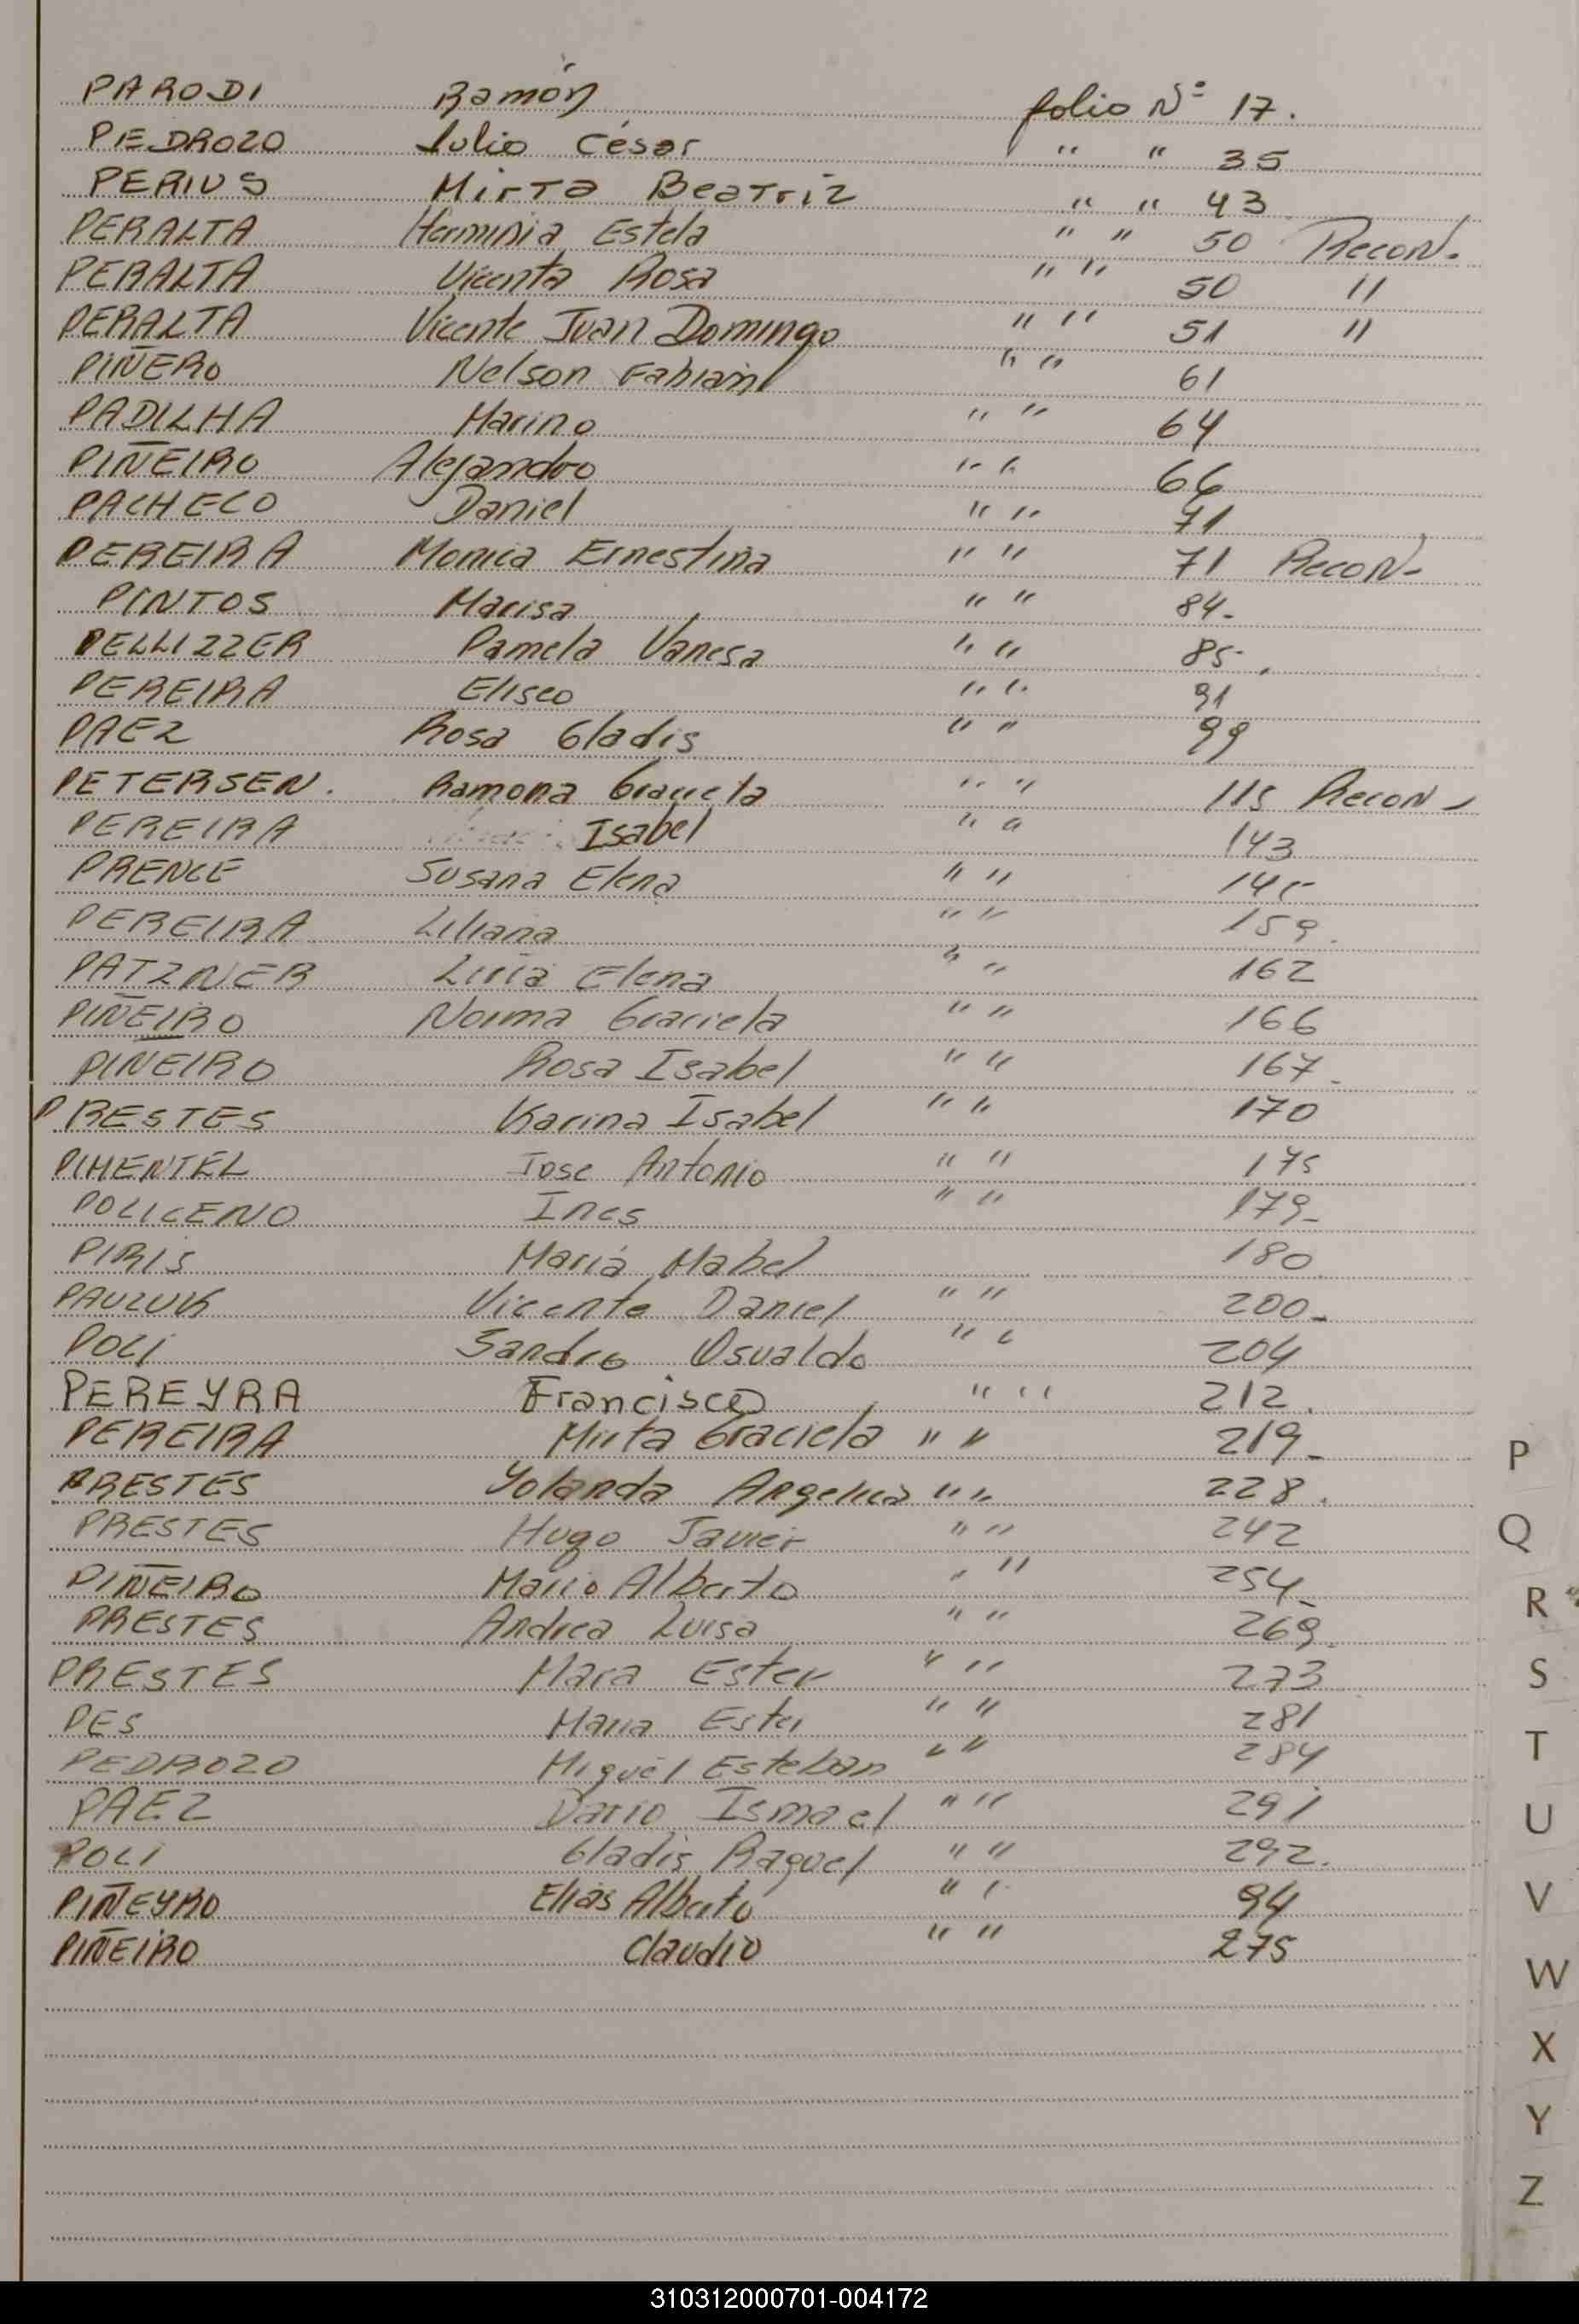 PARODI Ramón folio Nº 17.
PEDROZO Julio César " " 35
PERIUS Mirta Beatriz " " 43
PERALTA Herminia Estela " " 50 Recon.
PERALTA Vicenta Rosa " " 50 "
PERALTA Vicente Juan Domingo " " 51 "
PIÑERO Nelson Fabian " " 61
PADILHA Marino " " 64
PIÑEIRO Alejandro " " 66
PACHECO Daniel " " 71
PEREIRA Monica Ernestina " " 71 Recon-
PINTOS Marisa " " 84-
PELLIZZER Pamela Vanesa " " 85.
PEREIRA Eliseo " " 91
PAEZ Rosa Gladis " " 99
PETERSEN. Ramona Graciela " " 115 Recon-
PEREIRA Isabel " " 143
PRENCE Susana Elena " "
PEREIRA Liliana " " 159.
PATZNER Liria Elena " " 162
PIÑEIRO Norma Graciela " " 166
PIÑEIRO Rosa Isabel " " 167-
PRESTES Karina Isabel " " 170
PIMENTEL Jose Antonio " " 175
POLICENO Ines " " 179-
PIRIS Maria Mabel 180
PAUZUK Vicente Daniel " " 200-
POLI Sandro Osvaldo " " 204
PEREYRA Francisco " " 212.
PEREIRA Mirta Graciela " " 219-
PRESTES Yolanda Angelica " " 228.
PRESTES Hugo Javier " " 242
PIÑEIRO Mario Alberto " " 254
PRESTES Andrea Luisa " " 269.
PRESTES Mara Ester " " 273
PES Maria Ester " " 281
PEDROZO Miguel Esteban " " 284
PAEZ Dario Ismael " " 291
POLI Gladis Raquel " " 292.
PIÑEYRO Elias Alberto " " 94
PIÑEIRO Claudio " " 275
P
Q
R
S
T
U
V
W
X
Y
Z
310312000701-004172